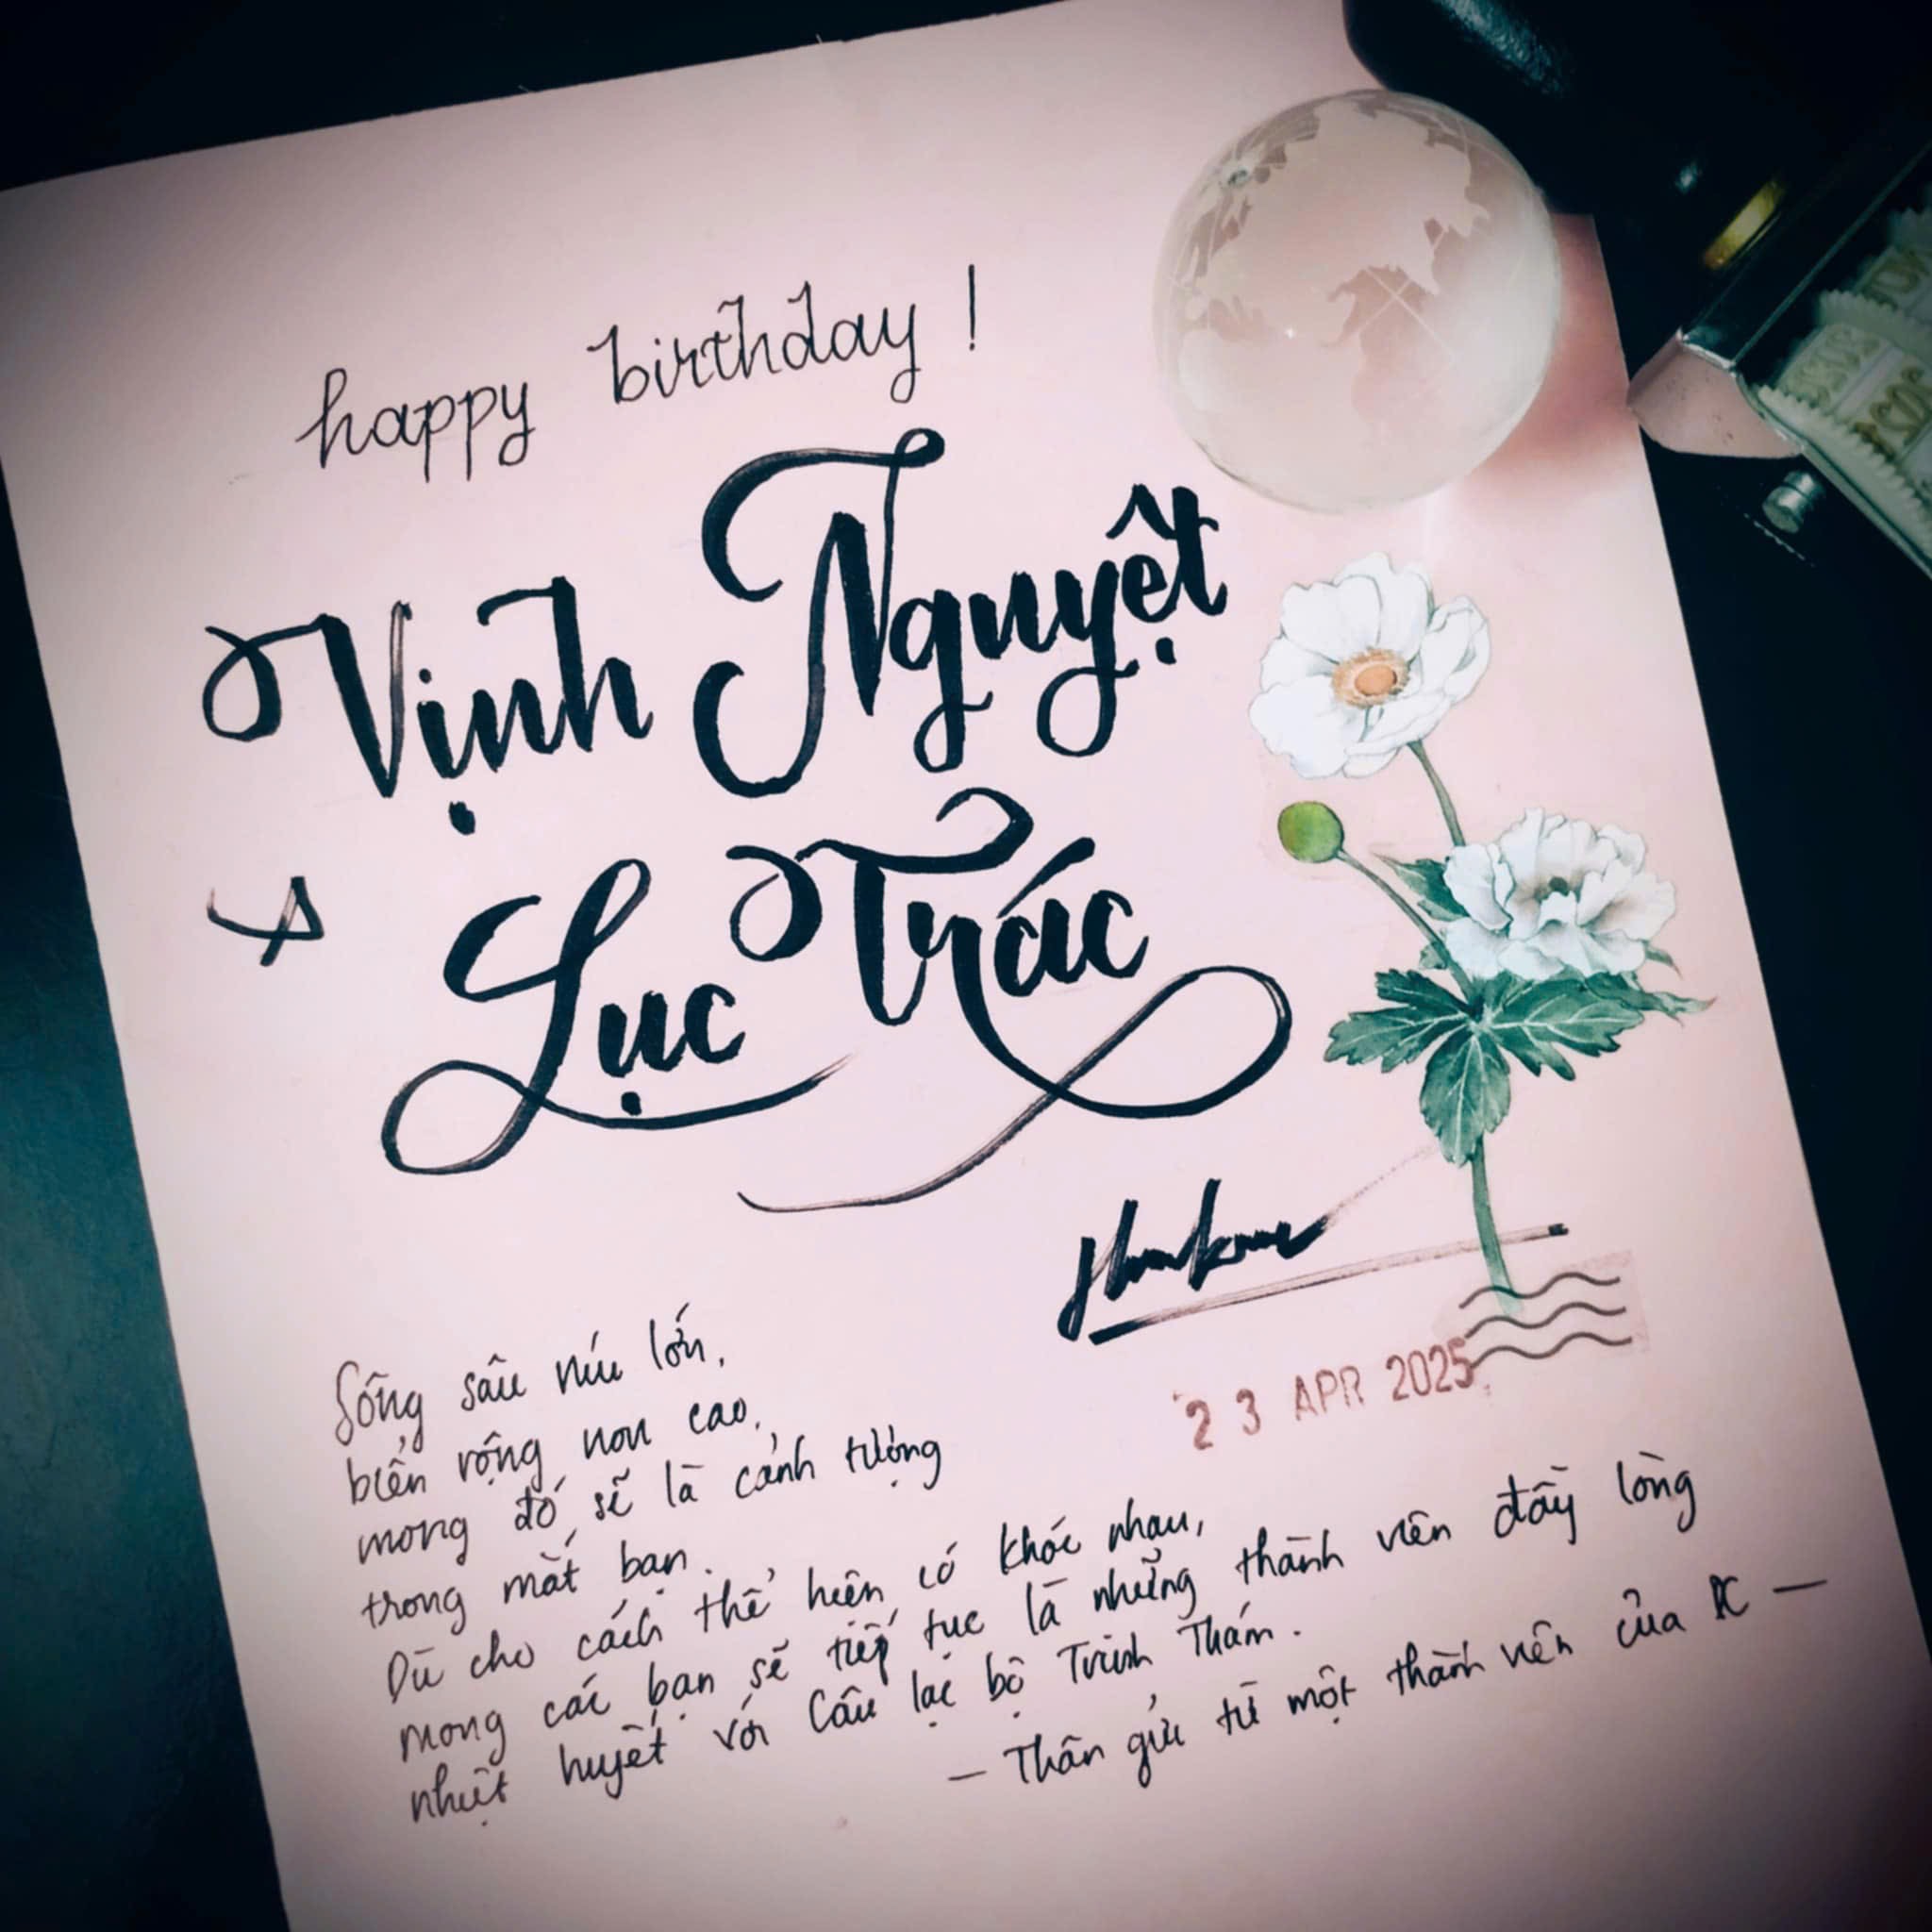 happy birthday !
Vịnh Nguyệt
& Lục Trác
23 APR 2025
Sông sâu núi lớn,
biển rộng non cao,
mong đó sẽ là cảnh tượng
trong mắt bạn.
Dù cho cách thể hiện có khác nhau,
mong các bạn sẽ tiếp tục là những thành viên đầy lòng
nhiệt huyết với Câu lạc bộ Trinh Thám.
— Thân gửi từ một thành viên của DC —